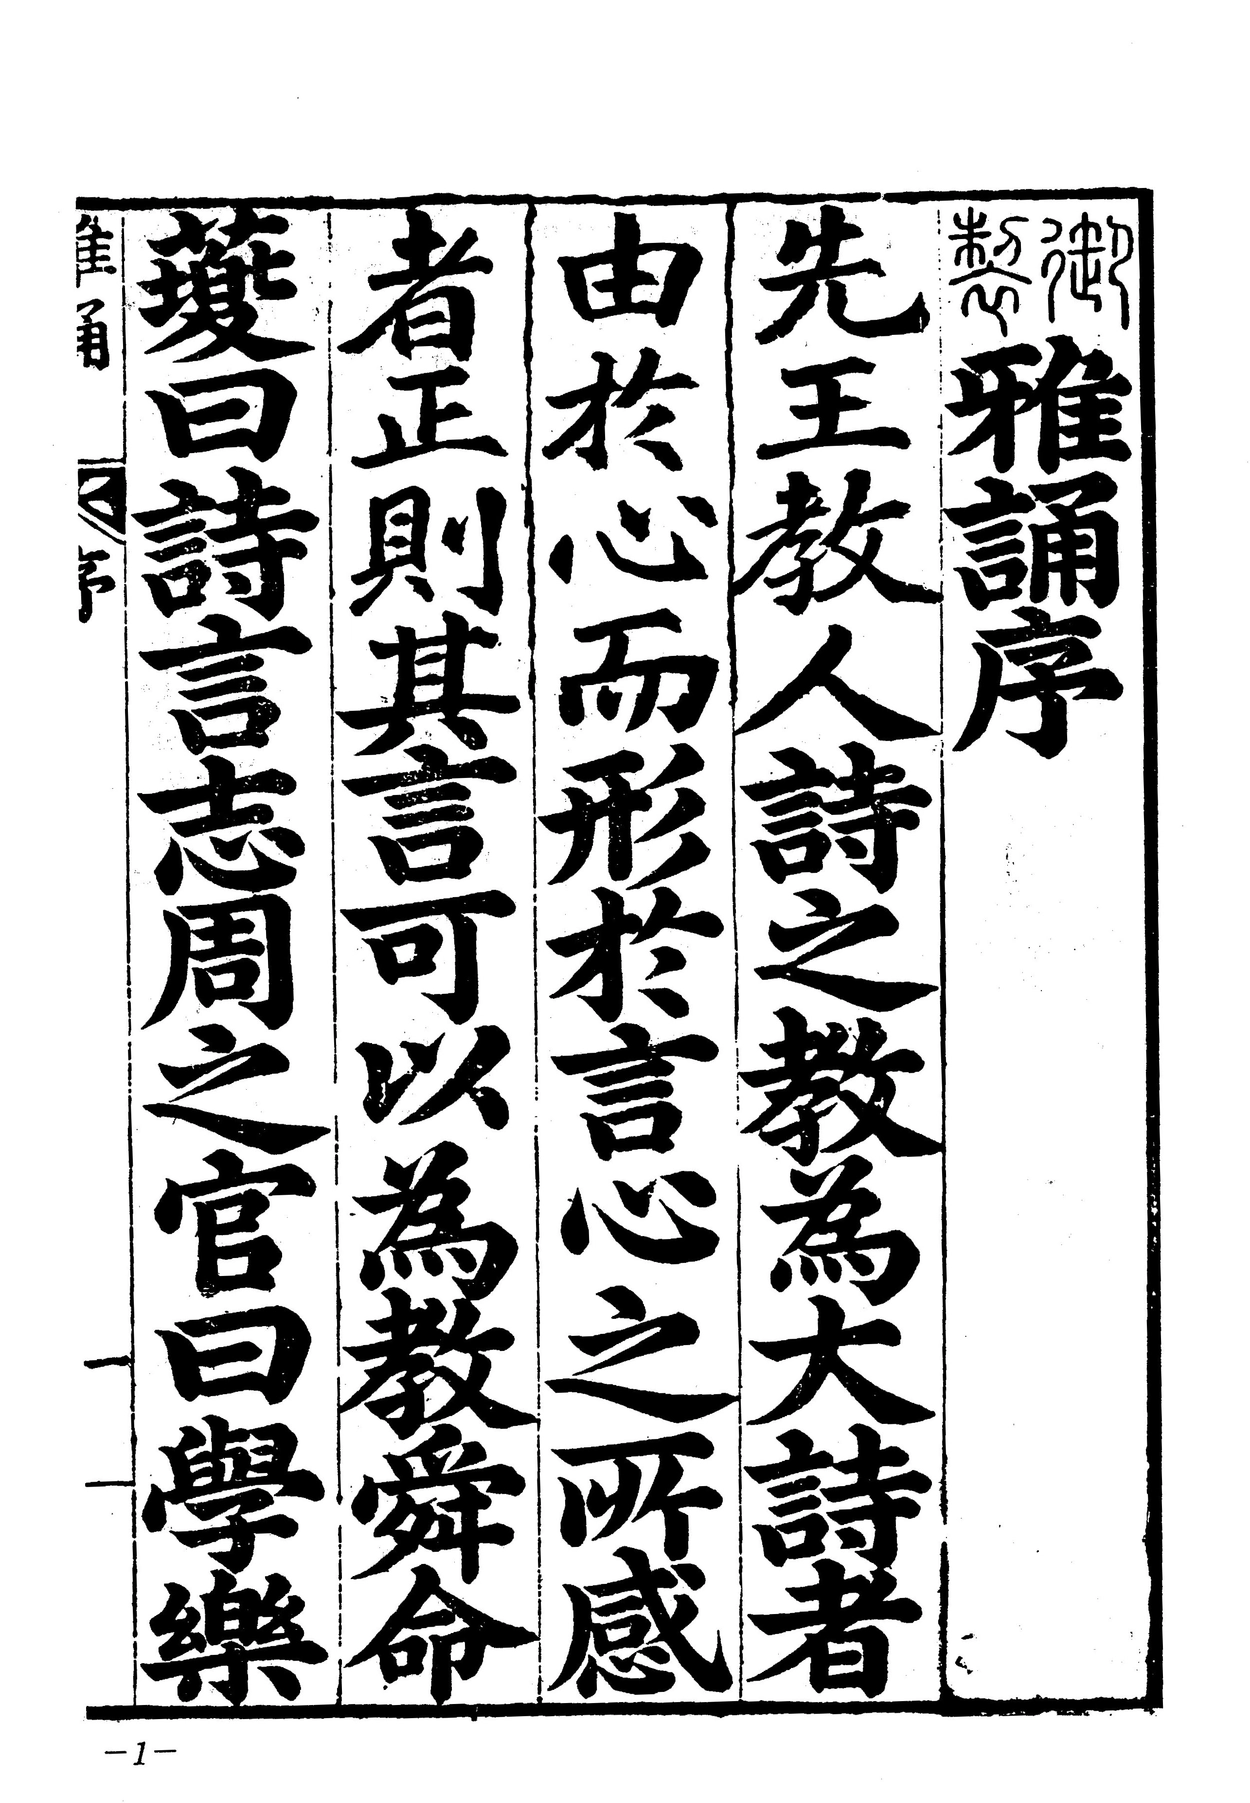 御製雅誦序
先王教人詩之教為大詩者
由於心而形於言心之所感
者正則其言可以為教舜命
夔曰詩言志周之官曰學樂
雅誦 序 一
-1-